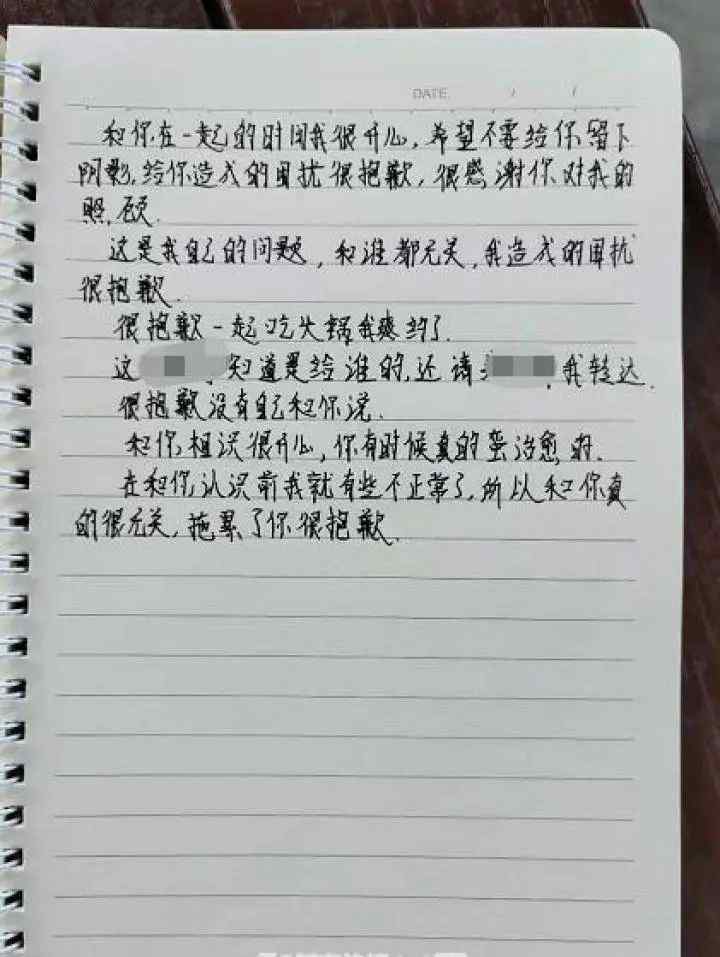 DATE / /
和你在一起的时间我很开心,希望不要给你留下
阴影,给你造成的困扰很抱歉,很感谢你对我的
照顾.
这是我自己的问题,和谁都无关,我造成的困扰
很抱歉.
很抱歉一起吃火锅我爽约了.
这 知道是给谁的,还请 ,我转达.
很抱歉没有自己和你说.
和你相识很开心,你有时候真的蛮治愈的.
在和你认识前我就有些不正常了,所以和你真
的很无关,拖累了你很抱歉.